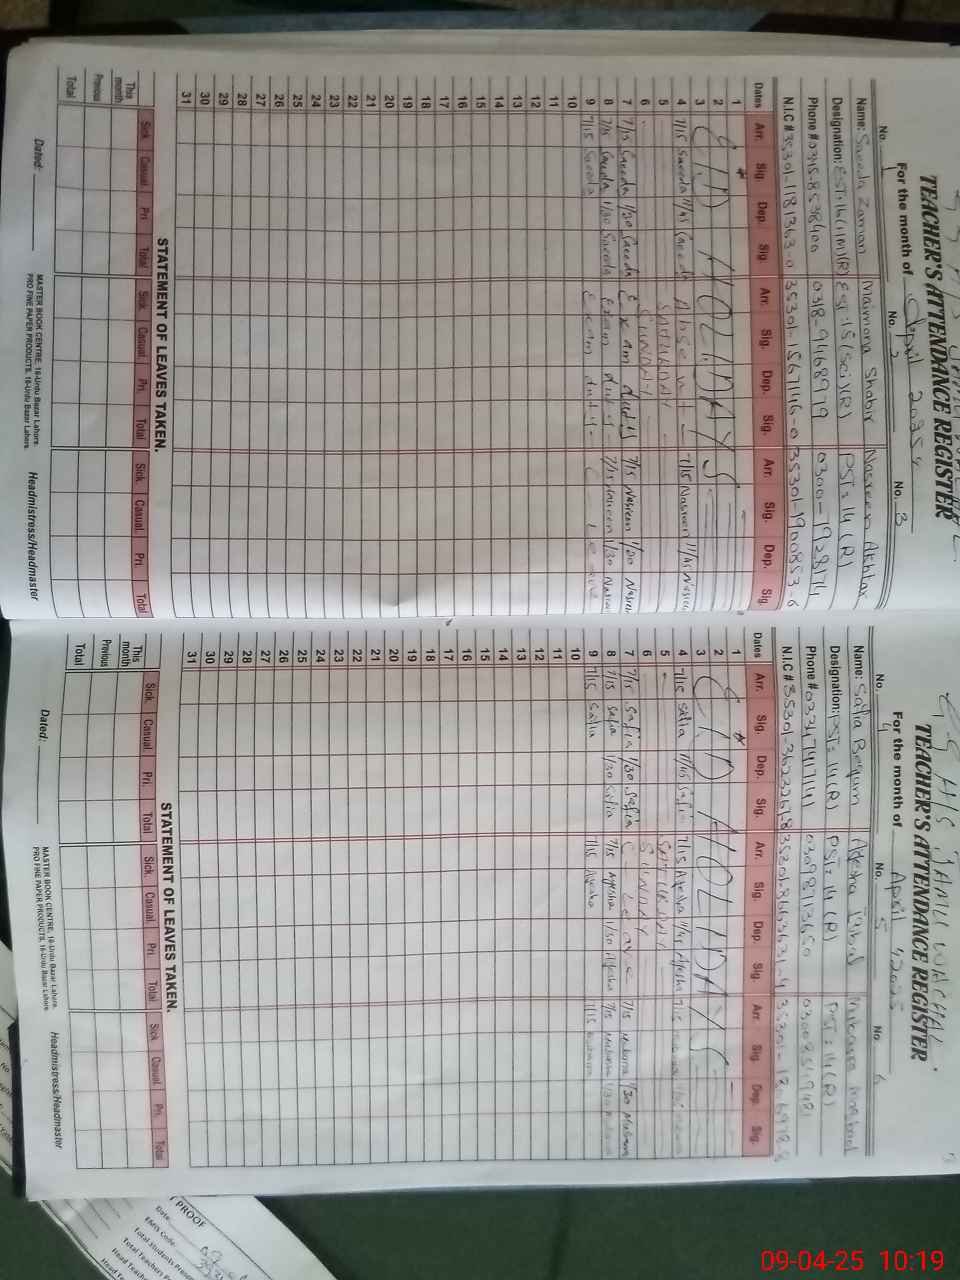 TEACHER'S ATTENDANCE REGISTER
For the month of April 2025
No. 1 No. 2 No. 3
Name: Saeeda Zaman Maimona Shabir Nasreen Akhtar
Designation: EST:16 (R) EST:15 (Sci)(R) PST: 14 (R)
Phone # 0345-8538400 0318-9468979 0300-7928174
N.I.C # 35301-1181363-0 35301-1567146-0 35301-1900853-6
Dates Arr. Sig. Dep. Sig. Arr. Sig. Dep. Sig. Arr. Sig. Dep. Sig.
1
2 EID HOLIDAYS
3
4 7/15 Saeeda 11/45 Saeeda Absent 7/15 Nasreen 11/45 Nasreen
5 SATURDAY
6 SUNDAY
7 7/15 Saeeda 1/30 Saeeda Exam duty 7/15 Nasreen 1/30 Nasreen
8 7/15 Saeeda 1/30 Saeeda Exam duty 7/15 Nasreen 1/30 Nasreen
9 7/15 Saeeda Exam duty C Leave
10
11
12
13
14
15
16
17
18
19
20
21
22
23
24
25
26
27
28
29
30
31
STATEMENT OF LEAVES TAKEN.
Sick. Casual. Pri. Total Sick. Casual. Pri. Total Sick. Casual. Pri. Total
This month
Previous
Total
Dated:
MASTER BOOK CENTRE, 16-Urdu Bazar Lahore.
PRO FINE PAPER PRODUCTS, 16-Urdu Bazar Lahore.
Headmistress/Headmaster
TEACHER'S ATTENDANCE REGISTER
For the month of April 2025
No. 4 No. 5 No. 6
Name: Safia Begum Ayesha
Designation: PST: 14 (R) PST: 14 (R) PST: 14 (R)
Phone # 03347417141
N.I.C #
Dates Arr. Sig. Dep. Sig. Arr. Sig. Dep. Sig. Arr. Sig. Dep. Sig.
1
2 EID HOLIDAYS
3
4 7/15 Safia 11/45 Safia 7/15 Ayesha 11/45 Ayesha 7/15
5 SATURDAY
6 SUNDAY
7 7/15 Safia 1/30 Safia C Leave 7/15 1/30
8 7/15 Safia 1/30 Safia 7/15 Ayesha 1/30 Ayesha 7/15 1/30
9 7/15 Safia 7/15 Ayesha 7/15
10
11
12
13
14
15
16
17
18
19
20
21
22
23
24
25
26
27
28
29
30
31
STATEMENT OF LEAVES TAKEN.
Sick. Casual. Pri. Total Sick. Casual. Pri. Total Sick. Casual. Pri. Total
This month
Previous
Total
Dated:
MASTER BOOK CENTRE, 16-Urdu Bazar Lahore.
PRO FINE PAPER PRODUCTS, 16-Urdu Bazar Lahore.
Headmistress/Headmaster
PROOF
Date:
EMIS Code:
Total Students
Total Teachers
Head
09-04-25 10:19